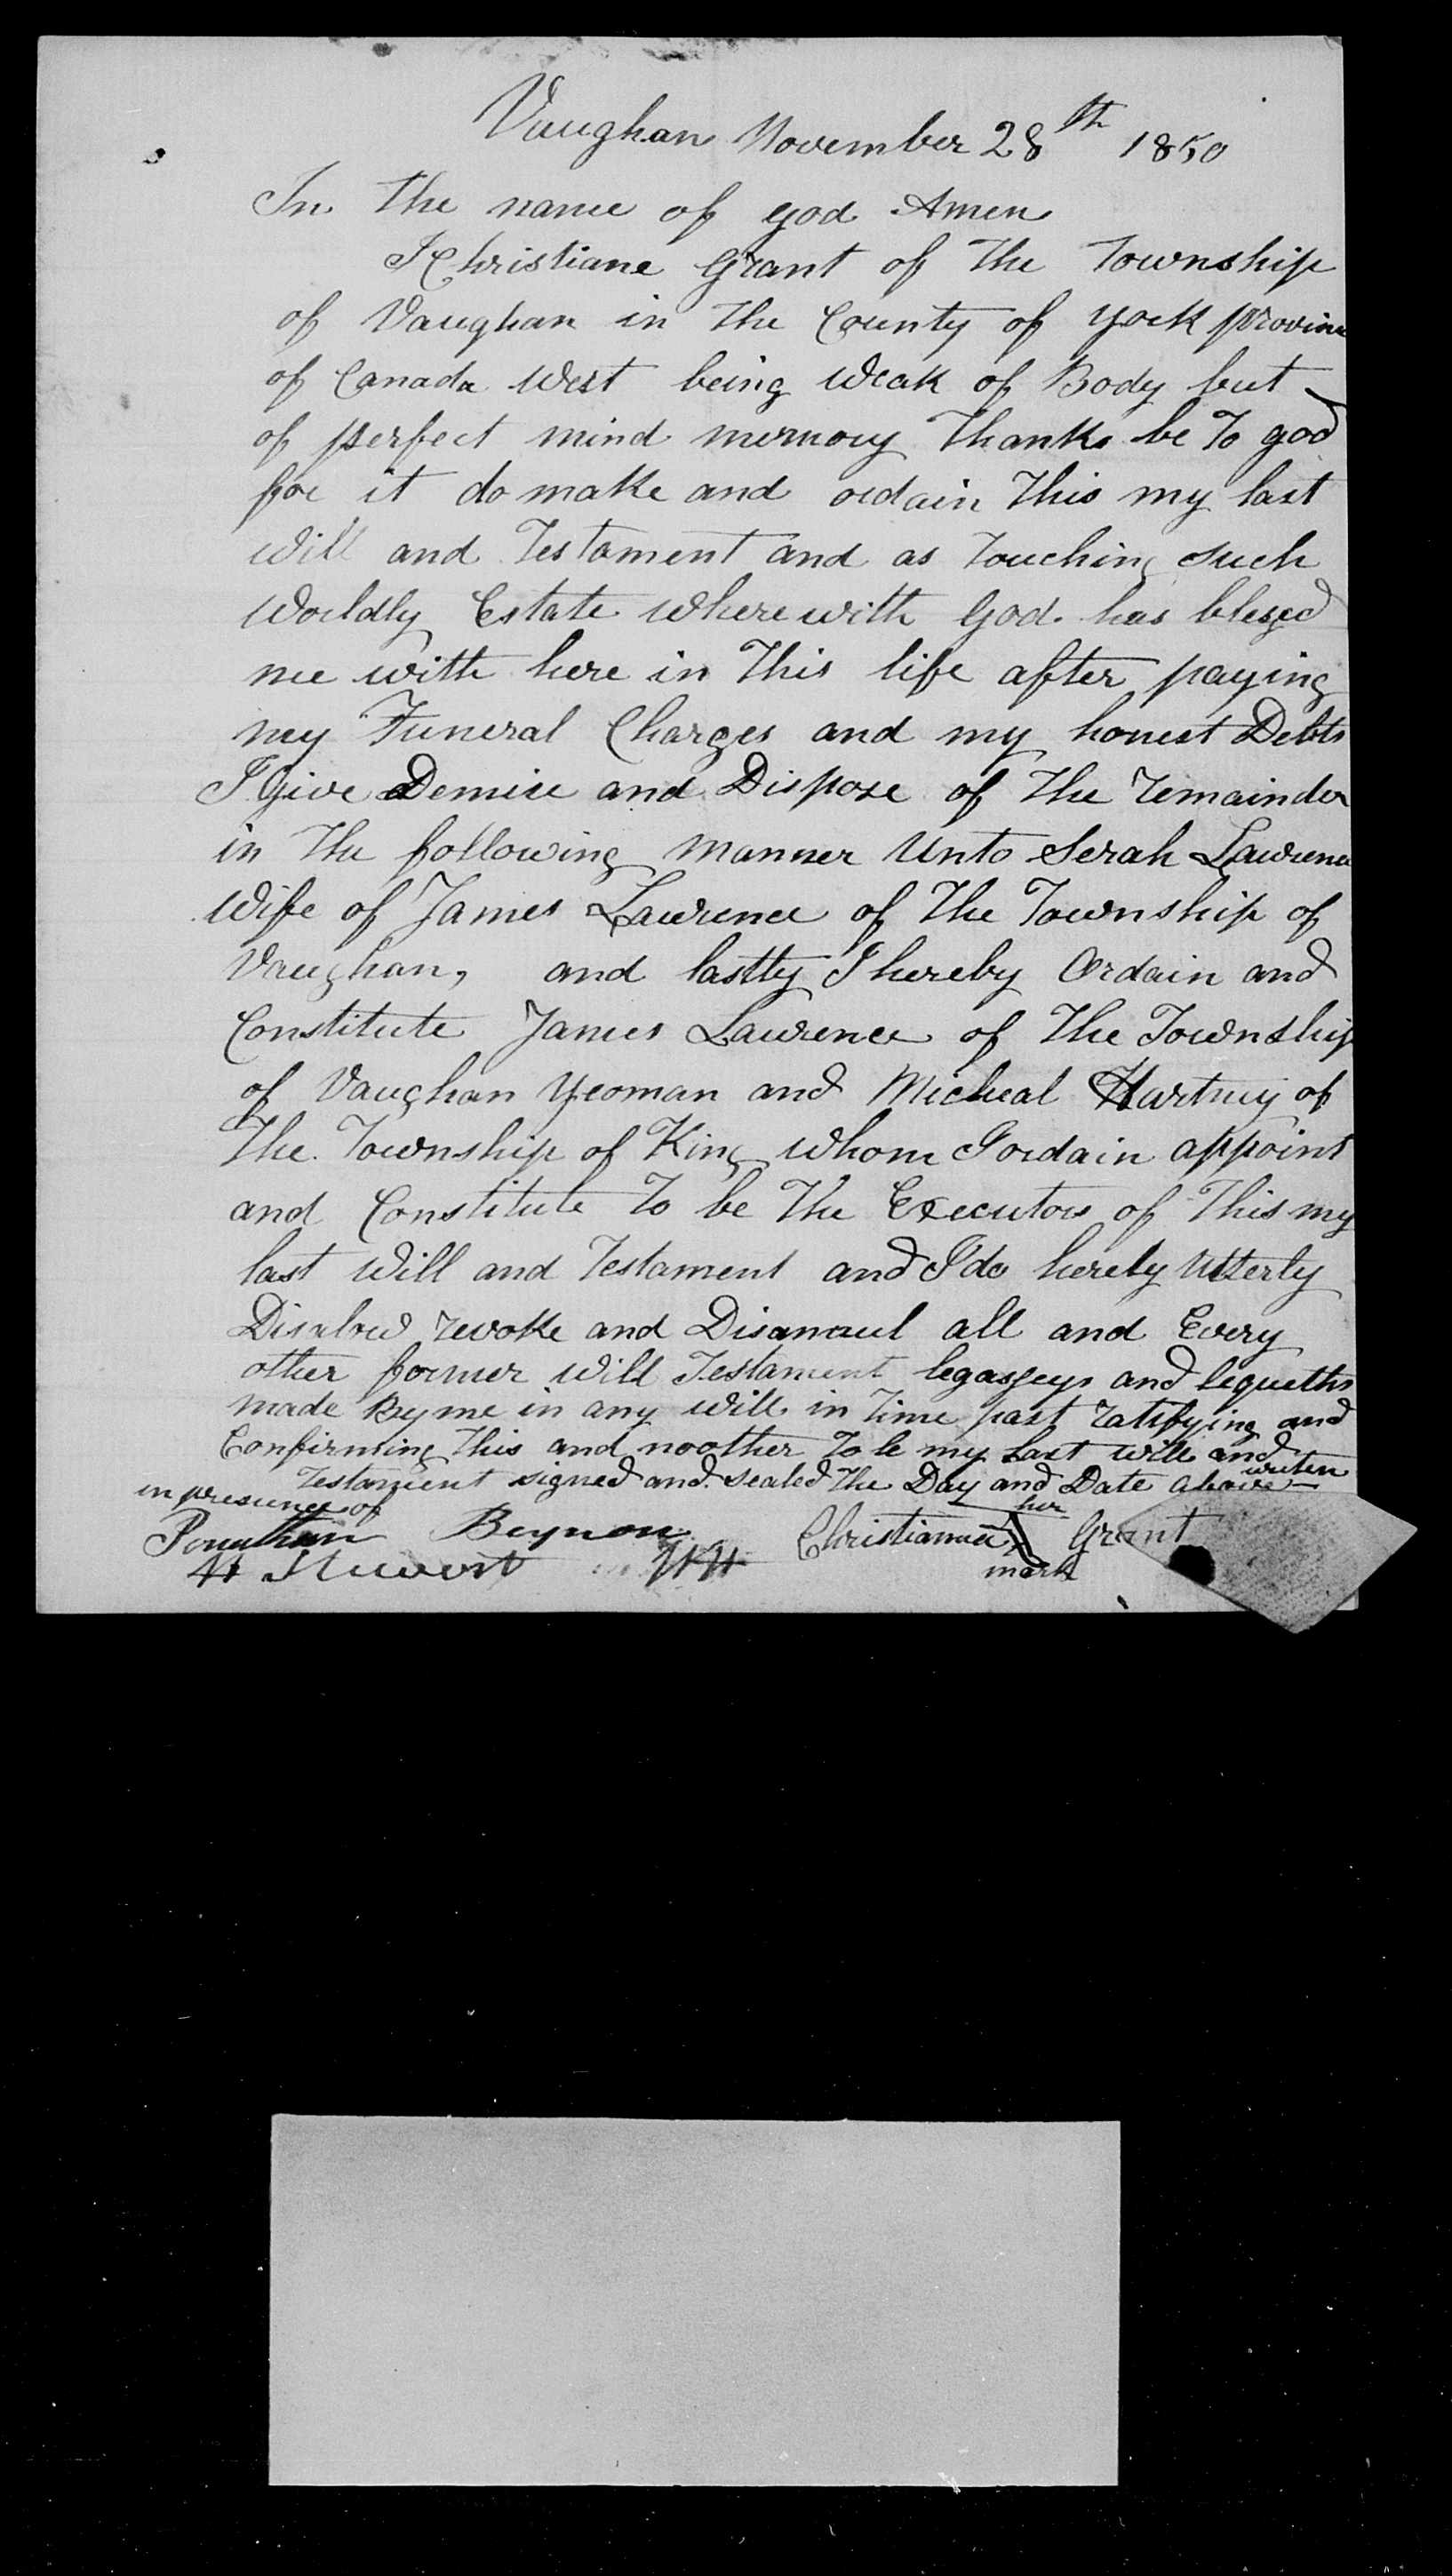 Vaughan November 28th 1850
In the name of god Amen
I Christiane Grant of The Township
of Vaughan in The County of york provine
of Canada West being Weak of Body but
of perfect mind memory Thanks be To god
for it do make and ordain This my last
Will and Testament and as Touching such
Worldly Estate wherewith God has blessed
me with here in This life after paying
my Funeral Charges and my honest Debts
I Give Demise and Dispose of The remainder
in The following manner Unto Serah Lawrence
Wife of James Lawrence of The Township of
Vaughan, and lastly I hereby Ordain and
Constitute James Lawrence of The Township
of Vaughan Yeoman and Micheal Hartney of
The Township of King whom I ordain appoint
and Constitute To be The Executors of This my
last Will and Testament and I do hereby Utterly
Disalow revoke and Disannul all and Every
other former Will Testament legasseys and bequeths
made By me in any will in Time past ratifying and
Confirming This and no other To be my last will and
Testament signed and sealed The Day and Date above writen
in presence of
Jonathan Beynon Christianna her mark Grant
H Stewart